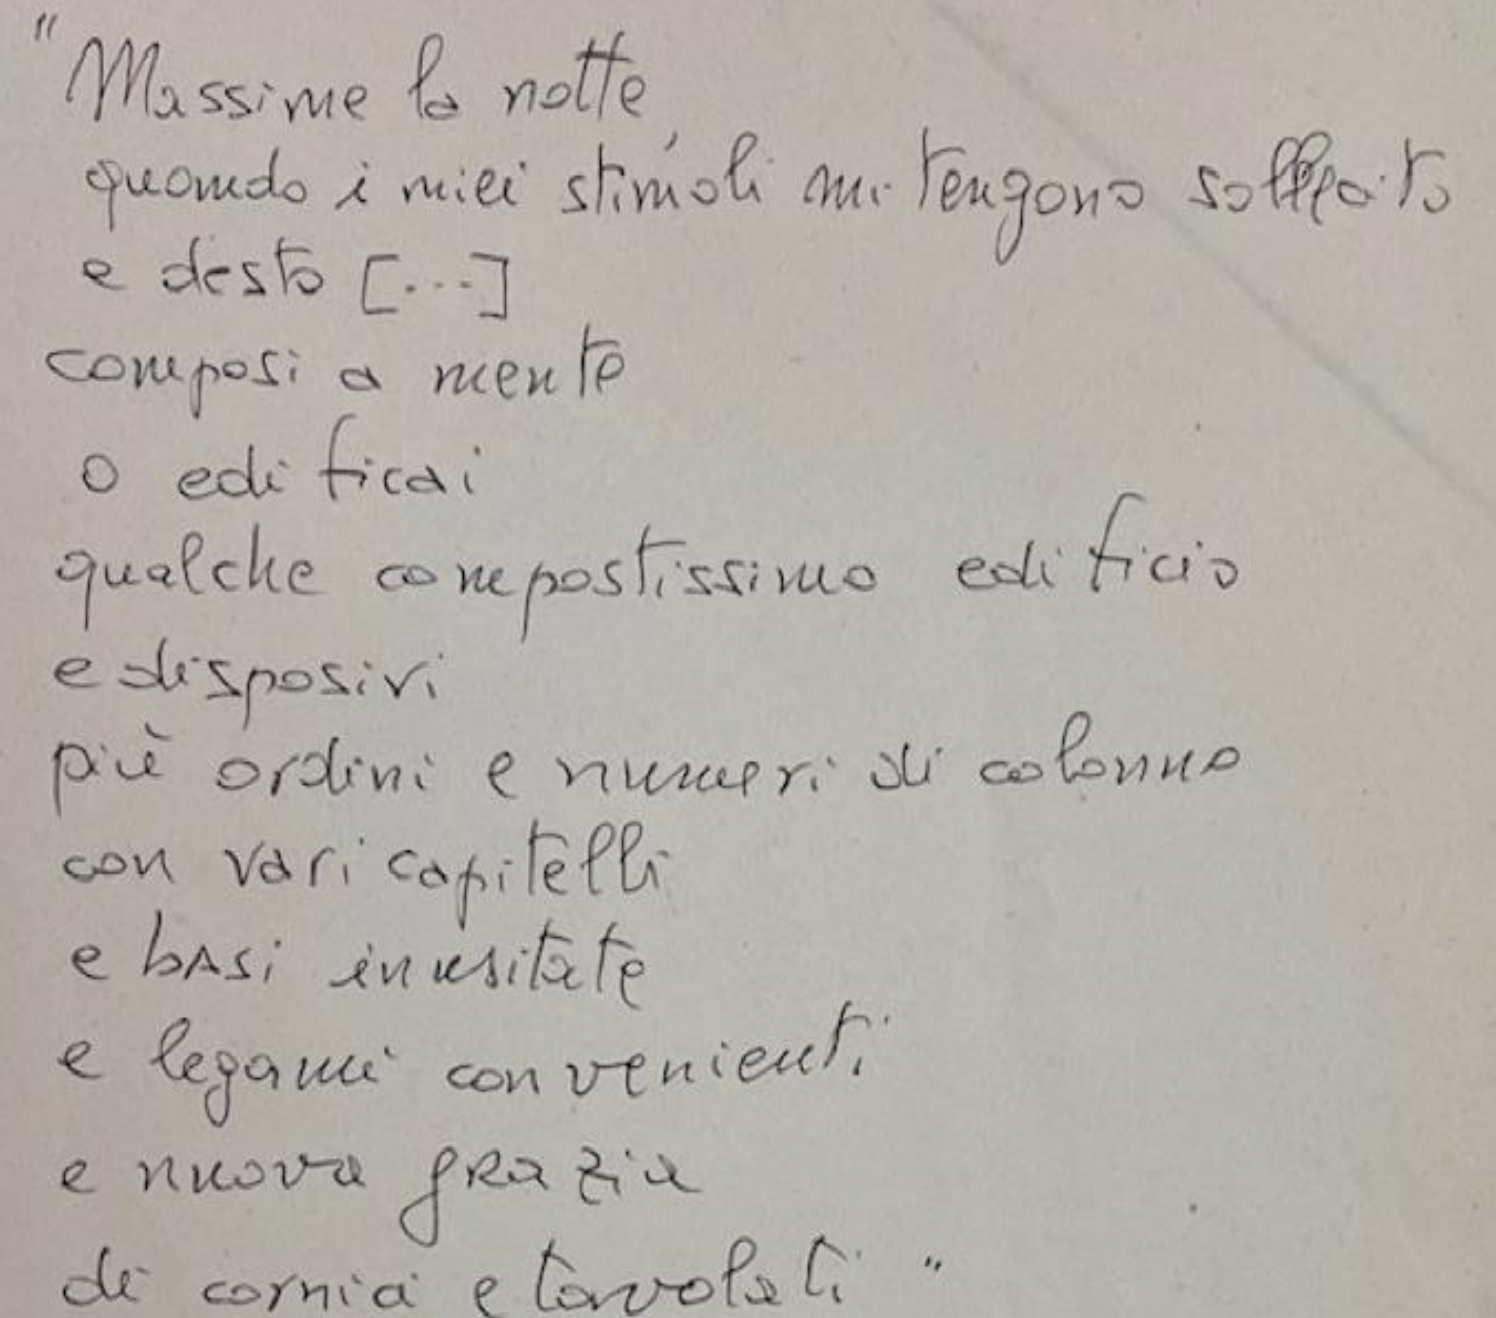 "Massime la notte,
quando i miei stimoli mi tengono sollecito
e desto [...]
composi a mente
o edificai
qualche compostissimo edificio
e disposivi
più ordini e numeri di colonne
con vari capitelli
e basi inusitate
e legami convenienti
e nuova grazia
di cornici e tavolati"